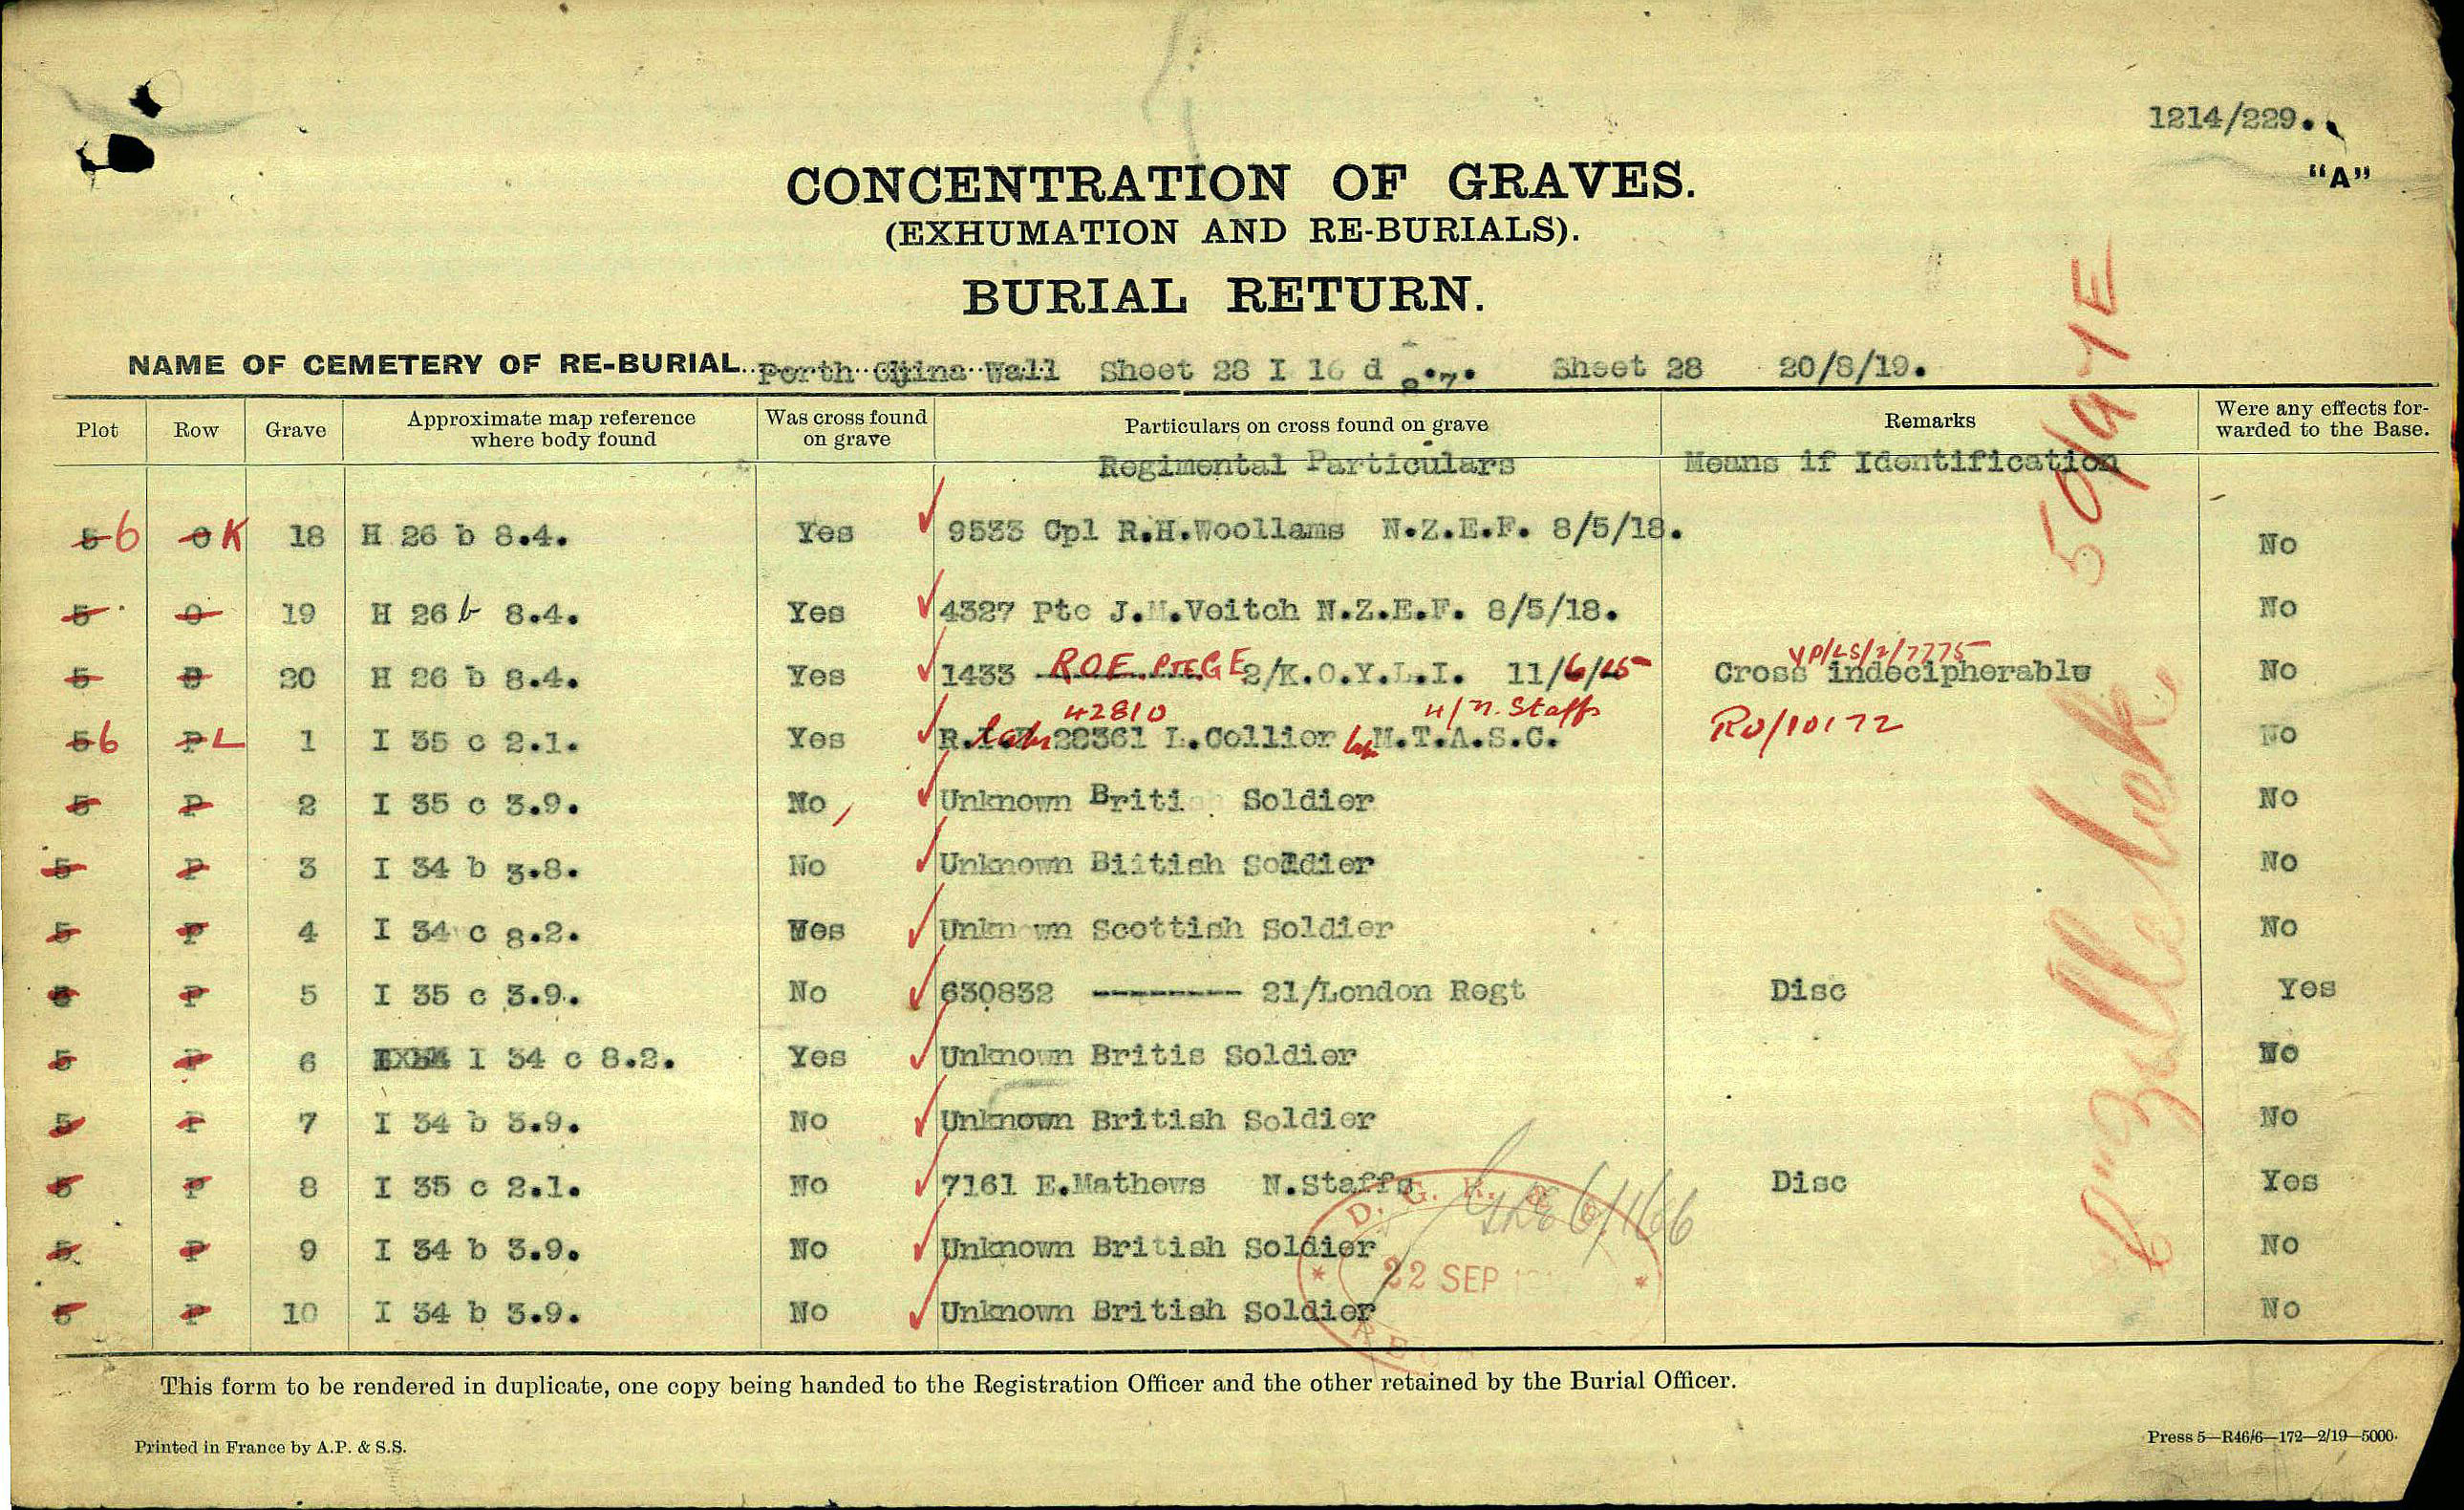 1214/229.
"A"
CONCENTRATION OF GRAVES.
(EXHUMATION AND RE-BURIALS).
BURIAL RETURN.
NAME OF CEMETERY OF RE-BURIAL. Perth China Wall Sheet 28 I 16 d Sheet 28 20/8/19.
Plot Row Grave Approximate map reference where body found Was cross found on grave Particulars on cross found on grave Remarks Were any effects forwarded to the Base.
Regimental Particulars Means if Identification
5 6 O K 18 H 26 b 8.4. Yes 9533 Cpl R.H.Woollams N.Z.E.F. 8/5/18. No
5 O 19 H 26 b 8.4. Yes 4327 Pte J.M.Veitch N.Z.E.F. 8/5/18. No
YP/LS/2/7775
5 O 20 H 26 b 8.4. Yes 1433 ROE. PTE G E 2/K.O.Y.L.I. 11/6/15 Cross indecipherable No
42810 4/N. Staffs
5 6 P L 1 I 35 c 2.1. Yes 28361 L.Collier M.T.A.S.C. RO/10172 No
5 P 2 I 35 c 3.9. No Unknown Briti Soldier No
5 P 3 I 34 b 3.8. No Unknown Biitish Soldier No
5 P 4 I 34 c 8.2. Yes Unknown Scottish Soldier No
5 P 5 I 35 c 3.9. No 630832 -------- 21/London Regt Disc Yes
5 P 6 I 34 c 8.2. Yes Unknown Britis Soldier No
5 P 7 I 34 b 3.9. No Unknown British Soldier No
5 P 8 I 35 c 2.1. No 7161 E.Mathews N.Staffs Disc Yes
5 P 9 I 34 b 3.9. No Unknown British Soldier No
5 P 10 I 34 b 3.9. No Unknown British Soldier No
D. G. R.
22 SEP
This form to be rendered in duplicate, one copy being handed to the Registration Officer and the other retained by the Burial Officer.
Printed in France by A.P. & S.S.
Press 5—R46/6—172—2/19—5000.